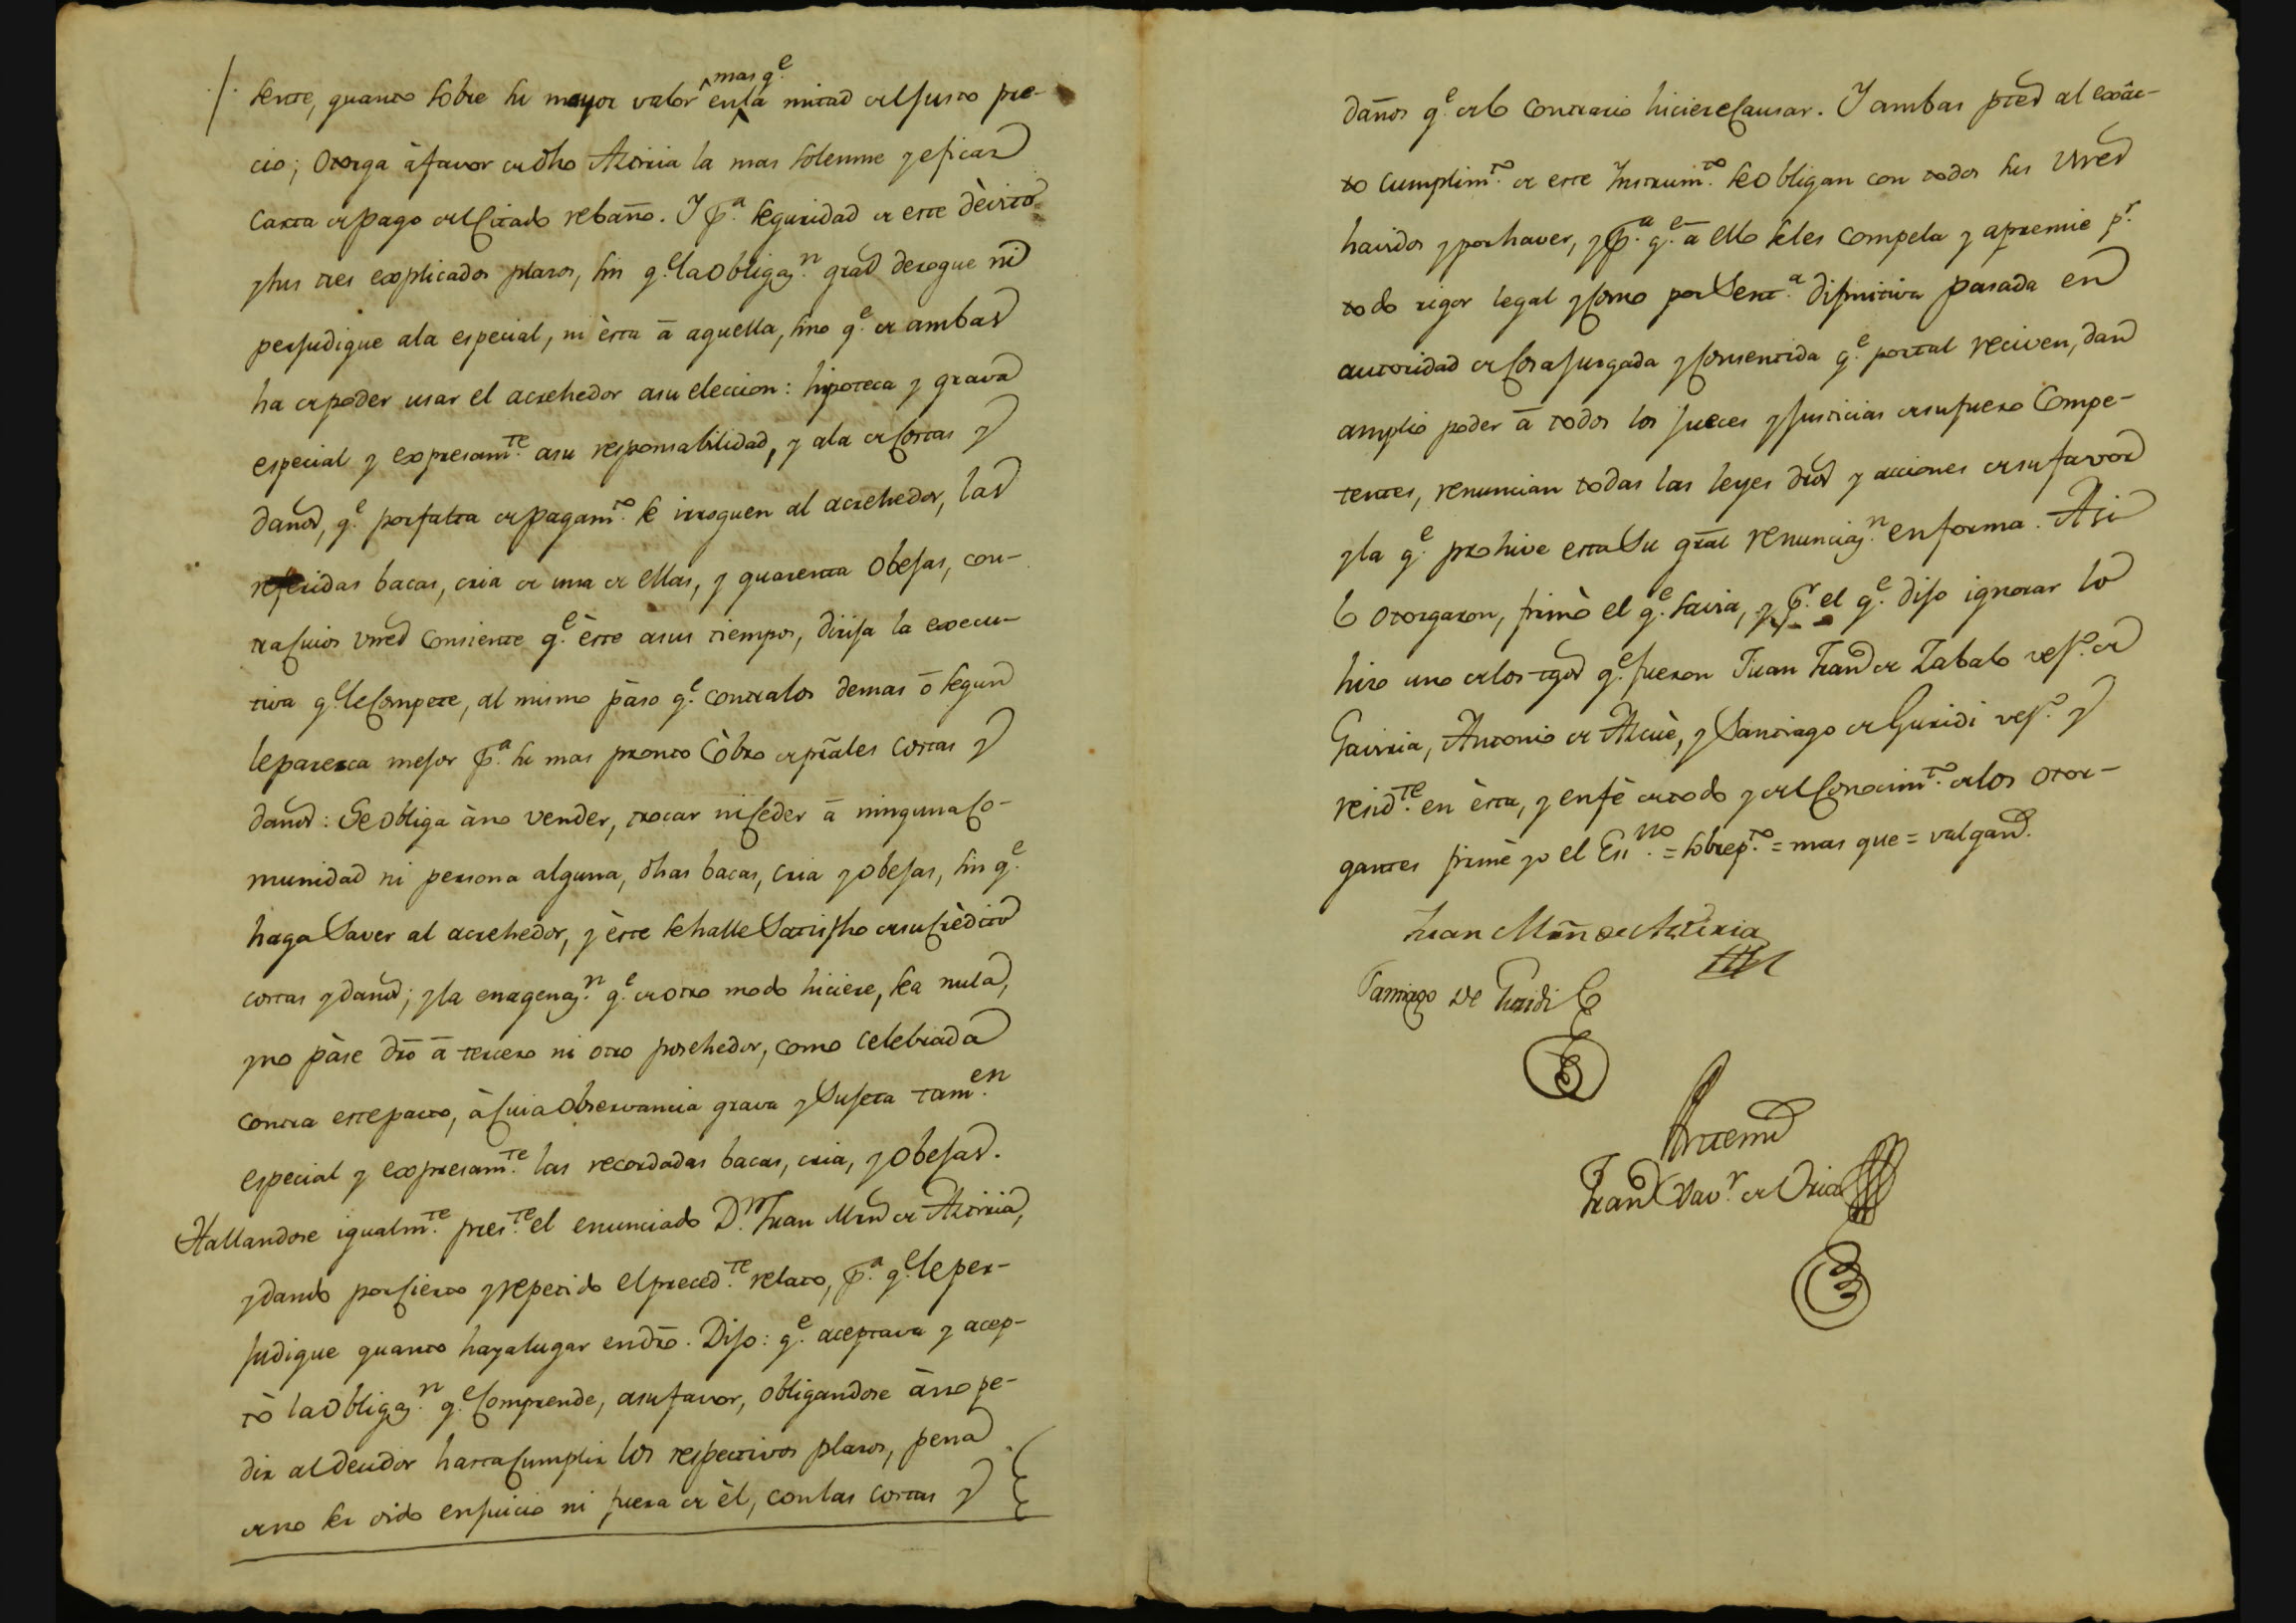 sente, quanto sobre su mayor valor mas q.e en la mitad del justo pre-
cio; otorga à favor de dho Azviria la mas solemne y eficaz
carta de pago del citado rebaño. Y p.a seguridad de este dèvito
y sus tres explicados plazos, sin q.e la obligaz.n gral derogue ni
perjudique a la especial, ni èsta ā aquella, sino q.e de ambas
ha de poder usar el acrehedor a su eleccion: hipoteca y grava
especial y expresam.te a su responsabilidad, y a la de costas y
daños, q.e por falta de pagam.to se irroguen al acrehedor, las
referidas bacas, cria de una de ellas, y quarenta obejas, con-
tra cuios vienes consiente q.e èste a sus tiempos, dirija la execu-
tiva q.e le compete, al mismo pàso q.e contra los demas ō segun
le parezca mejor p.a su mas pronto còbro de prales costas y
daños: Se obliga à no vender, trocar ni ceder ā ninguna co-
munidad ni persona alguna, dhas bacas, cria y obejas, sin q.e
haga saver al acrehedor, y èste se halle satisfho de su crèdito
costas y daños; y la enagenaz.n q.e de otro modo hiciere, sea nula,
y no pàse dro ā tercero ni otro posehedor, como celebrada
contra este pacto, à cuia observancia grava y sujeta tam.en
especial y expresam.te las recordadas bacas, cria, y obejas.
Hallandose igualm.te pres.te el enunciado D.n Juan Mrn de Azviria,
y dando por cierto y repetido el preced.te relato, p.a q.e le per-
judique quanto haya lugar en dro. Dijo: q.e aceptava y acep-
tò la obligaz.n q.e comprende, a su favor, obligandose à no pe-
dir al deudor hasta cumplir los respectivos plazos, pena
de no ser oido en juicio ni fuera de èl, con las costas y
daños q.e de lo contrario hiciere causar. Y ambas ptes al exâc-
to cumplim.to de este Instrum.to se obligan con todos sus vienes
havidos y por haver, y p.a q.e ā ello se les compela y apremie p.r
todo rigor legal y como por Sent.a difinitiva pasada en
autoridad de cosa juzgada y consentida q.e por tal reciven, dan
amplio poder ā todos los jueces y justicias de su fuero compe-
tentes, renuncian todas las leyes dros y acciones de su favor
y la q.e prohive esta su gral renunciaz.n en forma. Asi
lo otorgaron, firmò el q.e savia, y p.r el q.e dijo ignorar lo
hizo uno de los tgos q.e fueron Juan Fran.co de Zabalo vez.o de
Gaviria, Antonio de Alcuè, y Santiago de Guridi vez.o y
resid.te en èsta, y en fè de todo y del conocim.to de los otor-
gantes firmè yo el Ess.no = sobrep.to = mas que = valgan.
Juan Mrñ de Azviria
Santiago de Guridi
Antemi
Fran.co Xav.r de Oria